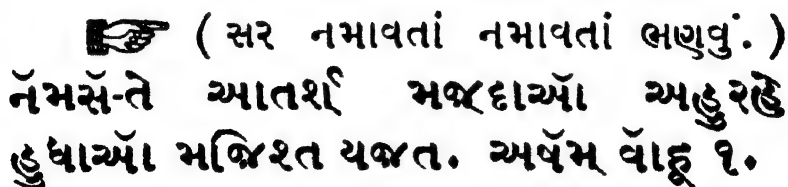 ☞ ( સર નમાવતાં નમાવતાં ભણવું. )
નૅમસૅ-તે આતર્શ્ મજ઼દાઑ અહુરહે
હુધાઑ મજિશ્ત યજ઼ત. અષૅમ્ વૉહૂ ૧.